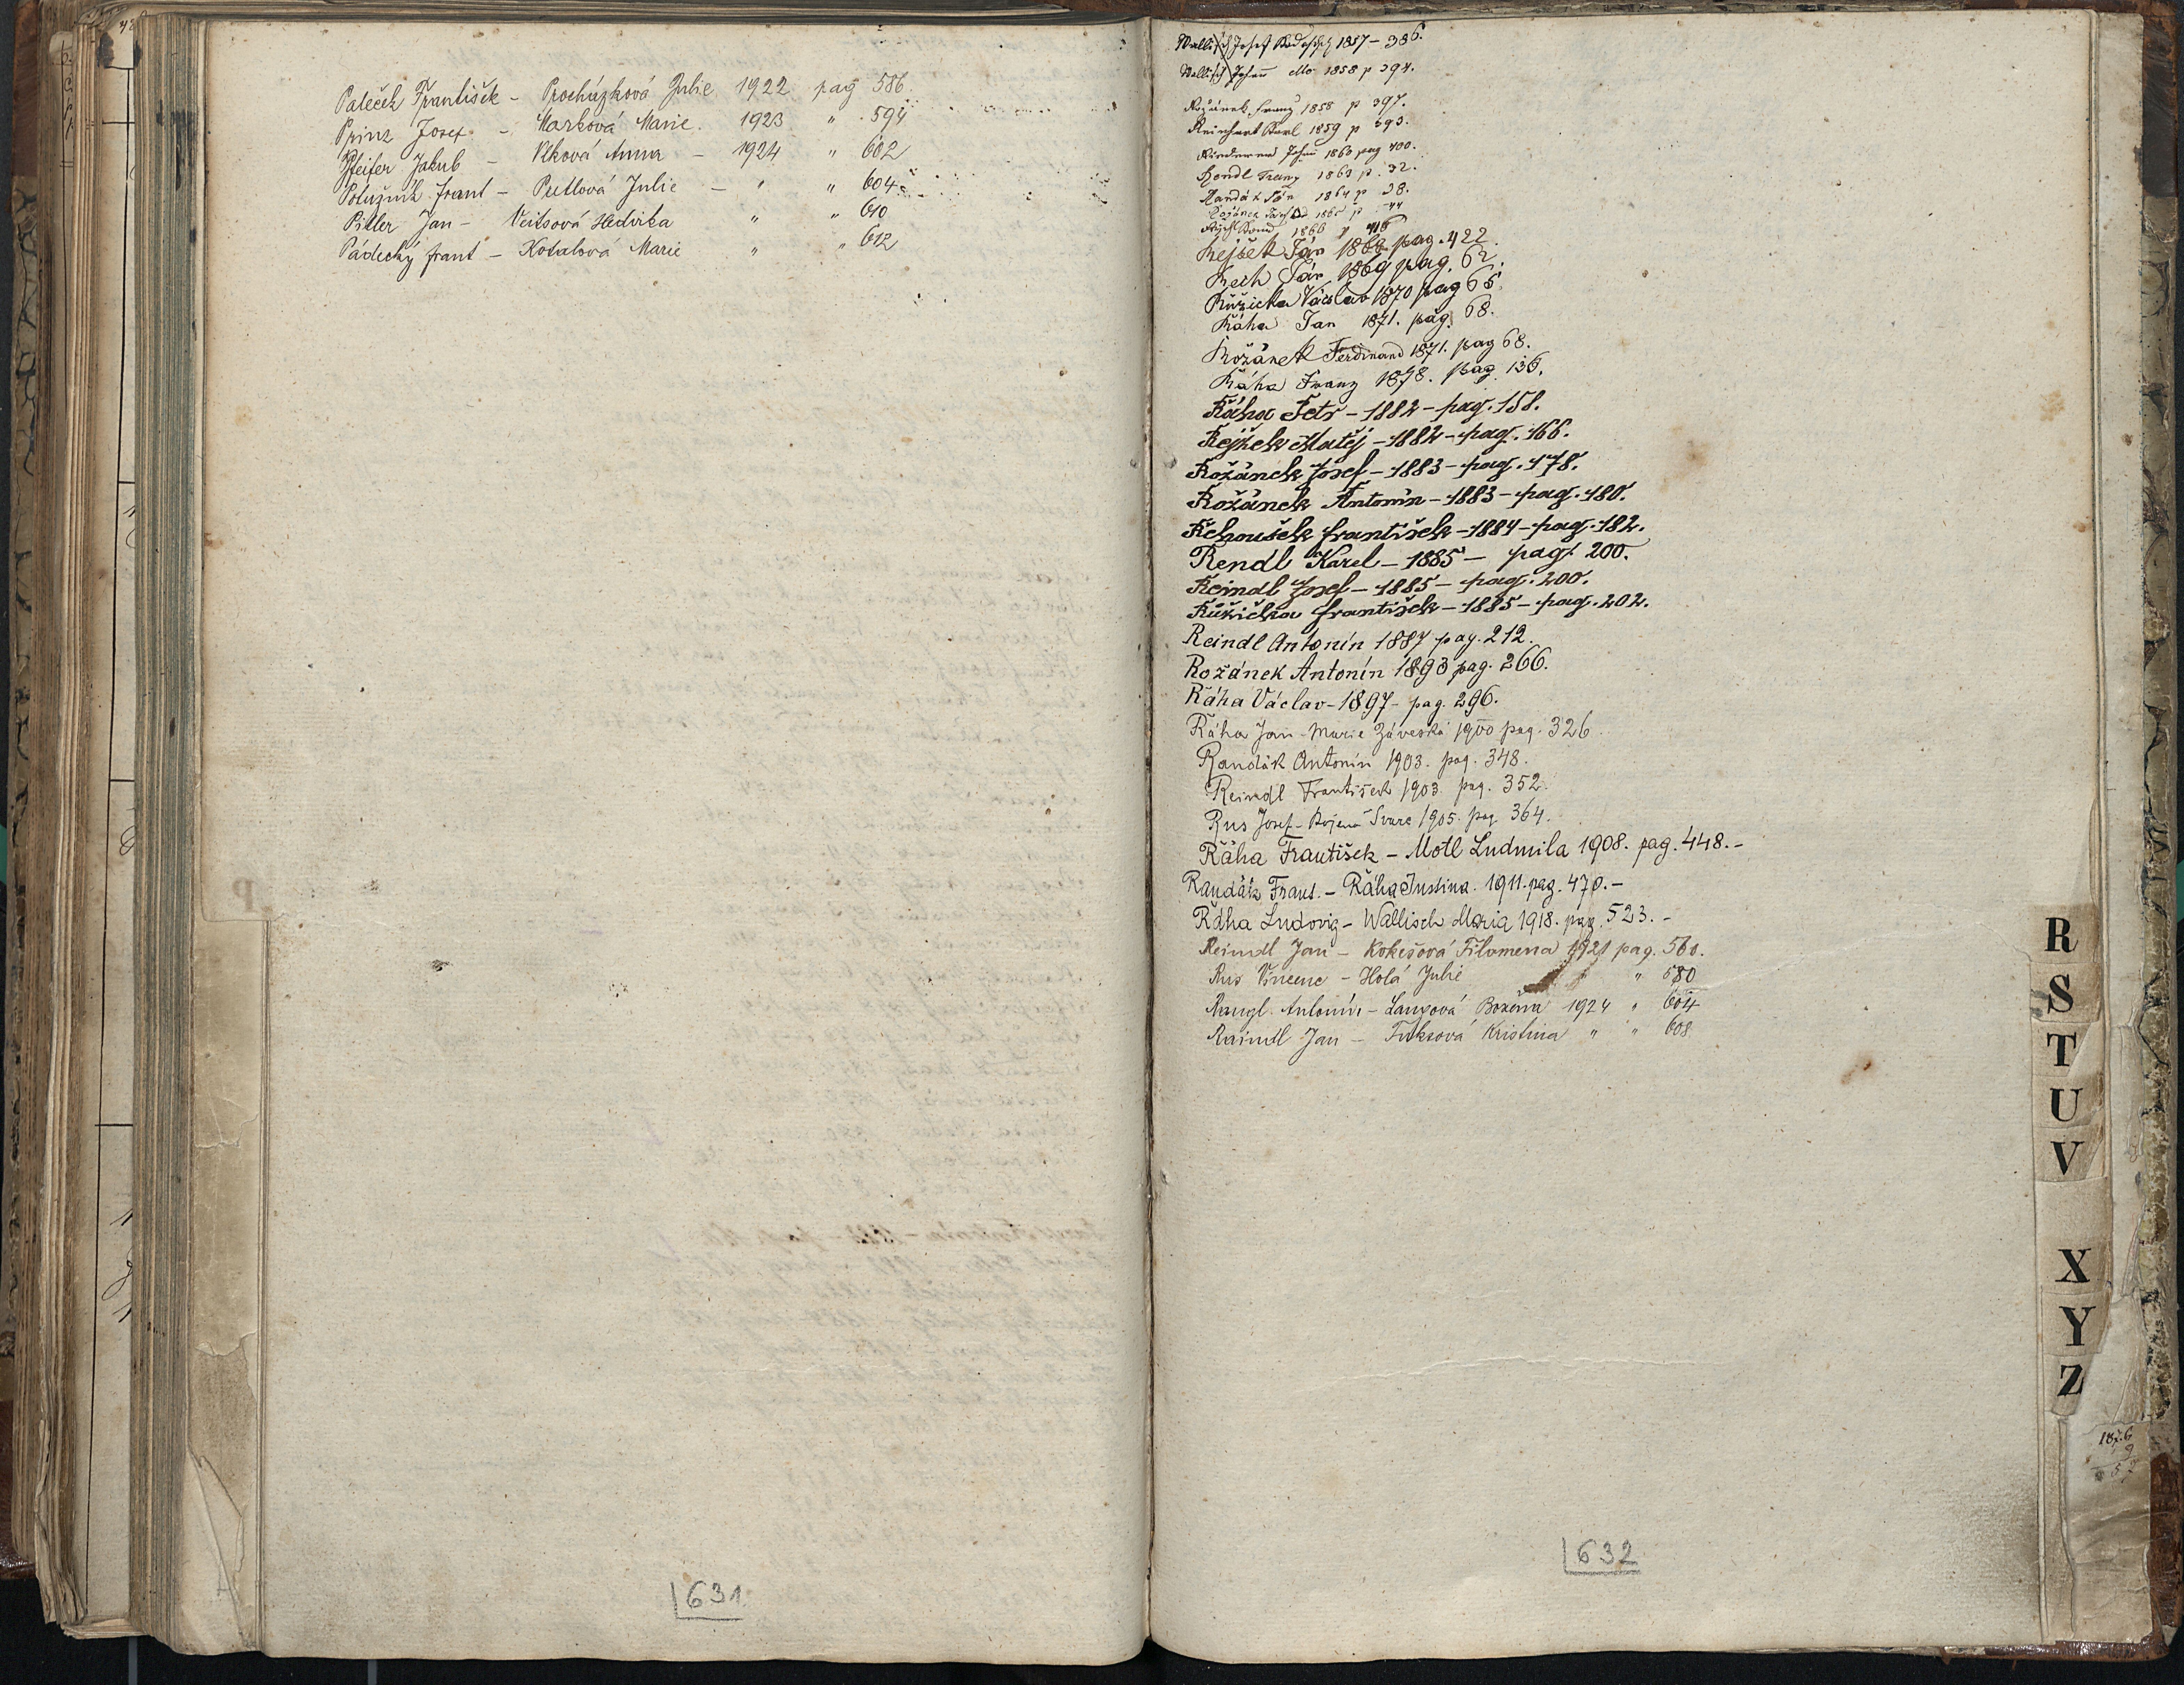 Paleček František - Procházková Julie 1922 pag 586.
Prinz Josef - Marková Marie. 1923 " 594
Pfeifer Jakub - Vlková Anna - 1924 " 602
Potužník Frant - Peitlová Julie - " " 604
Pitler Jan - Veitsová Hedvika " " 610
Pádecký Frant - Kotalová Marie " " 612
631
Wallisch Josef 1857 - 386.
Wallisch Johann 1858 p 394.
Rožánek Franz 1858 p 397.
Reinhart Karl 1859 p 393.
Johann 1860 pag 400.
Rendl Franz 1863 p. 32.
Randák Ján 1864 p 38.
Rožánek 1865 p 44
1866 p 416
Rejžek Ján 1868 pag. 422.
Rech Ján 1869 pag. 62.
Růžicka Václav 1870 pag 65.
Ráha Jan 1871. pag. 68.
Rožánek Ferdinand 1871. pag 68.
Ráha Franz 1878. pag. 136.
Řáha Petr - 1882 - pag. 158.
Rejžek Matěj - 1882 - pag. 166.
Rožánek Josef - 1883 - pag. 178.
Rožánek Antonín - 1883 - pag. 180.
Řehoušek František - 1884 - pag. 182.
Rendl Karel - 1885 - pag. 200.
Reindl Josef - 1885 - pag. 200.
Růžička František - 1885 - pag. 202.
Reindl Antonín 1887 pag. 212.
Rožánek Antonín 1893 pag. 266.
Řáha Václav - 1897 - pag. 296.
Řáha Jan - Marie Záveská 1900 pag. 326.
Randák Antonín 1903. pag. 348.
Reindl František 1903. pag. 352.
Rus Josef - Bojena Švarc 1905. pag. 364.
Řáha František - Motl Ludmila 1908. pag. 448. -
Randák Frant. - Řáha Justina. 1911. pag. 470. -
Řáha Ludovig - Wallisch Maria 1918. pag. 523. -
Reindl Jan - Kokešová Filomena 1921 pag. 560.
Rus Vincenc - Holá Julie " 580
Antonín - Langová Božena 1924 " 604
Raindl Jan - Fuksová Kristina " " 608
632
R
S
T
U
V
X
Y
Z
P